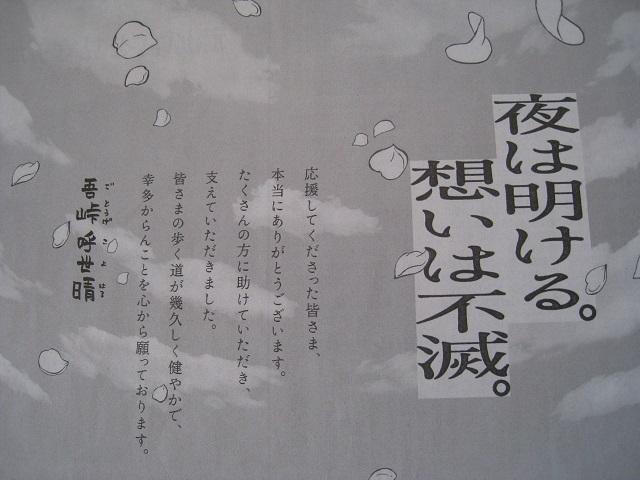 夜は明ける。
想いは不滅。
応援してくださった皆さま、
本当にありがとうございます。
たくさんの方に助けていただき、
支えていただきました。
皆さまの歩く道が幾久しく健やかで、
幸多からんことを心から願っております。
吾峠呼世晴
ごとうげこよはる